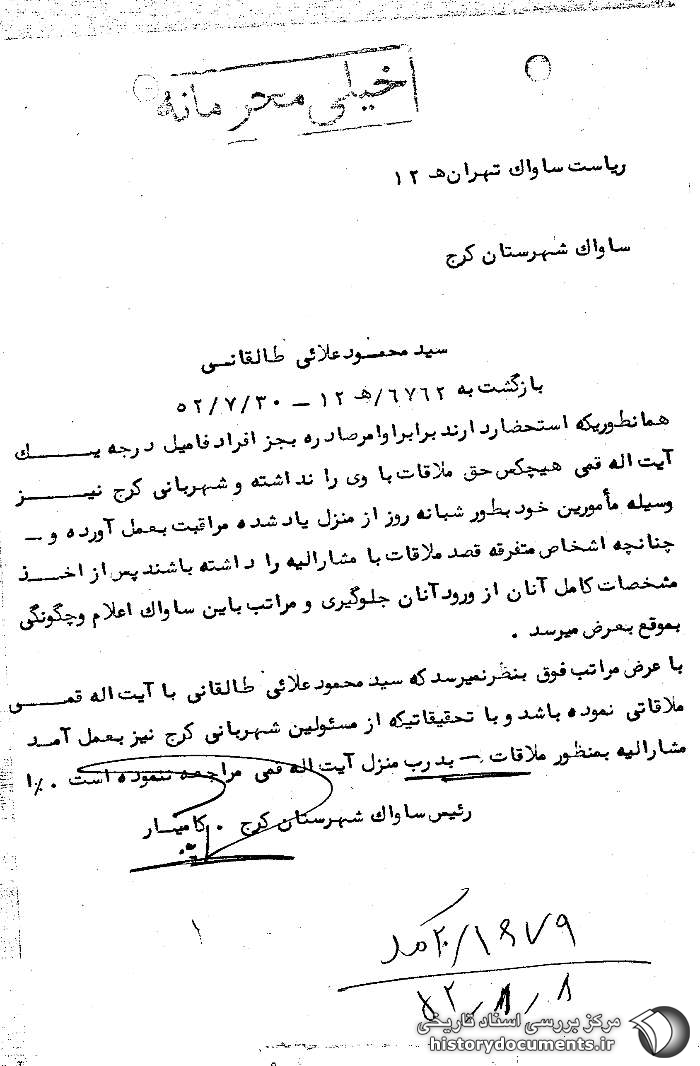 خیلی محرمانه
ریاست ساواك تهران هـ ۱۲
ساواك شهرستان کرج
سید محمود علائی طالقانی
بازگشت به ۶۷۶۲/هـ ۱۲ – ۵۲/۷/۳۰
همانطوریکه استحضار دارند برابر اوامر صادره بجز افراد فامیل درجه یـــك
آیت اله قمی هیچکس حق ملاقات با وی را نداشته و شهربانی کرج نیـــز
وسیله مأمورین خود بطور شبانه روز از منزل یاد شده مراقبت بعمل آورده و –
چنانچه اشخاص متفرقه قصد ملاقات با مشارالیه را داشته باشند پس از اخـــذ
مشخصات کامل آنان از ورود آنان جلوگیری و مراتب باین ساواك اعلام و چگونگی
بموقع بعرض میرسد .
با عرض مراتب فوق بنظر نمیرسد که سید محمود علائی طالقانی با آیت اله قمـــی
ملاقاتی نموده باشد و با تحقیقاتیکه از مسئولین شهربانی کرج نیز بعمل آمـد
مشارالیه بمنظور ملاقات – بدرب منزل آیت اله قمی مراجعه ننموده است . ا٪
رئیس ساواك شهرستان کرج . کامیـار
۱
۵۲/۸/۸
مرکز بررسی اسناد تاریخی
historydocuments.ir